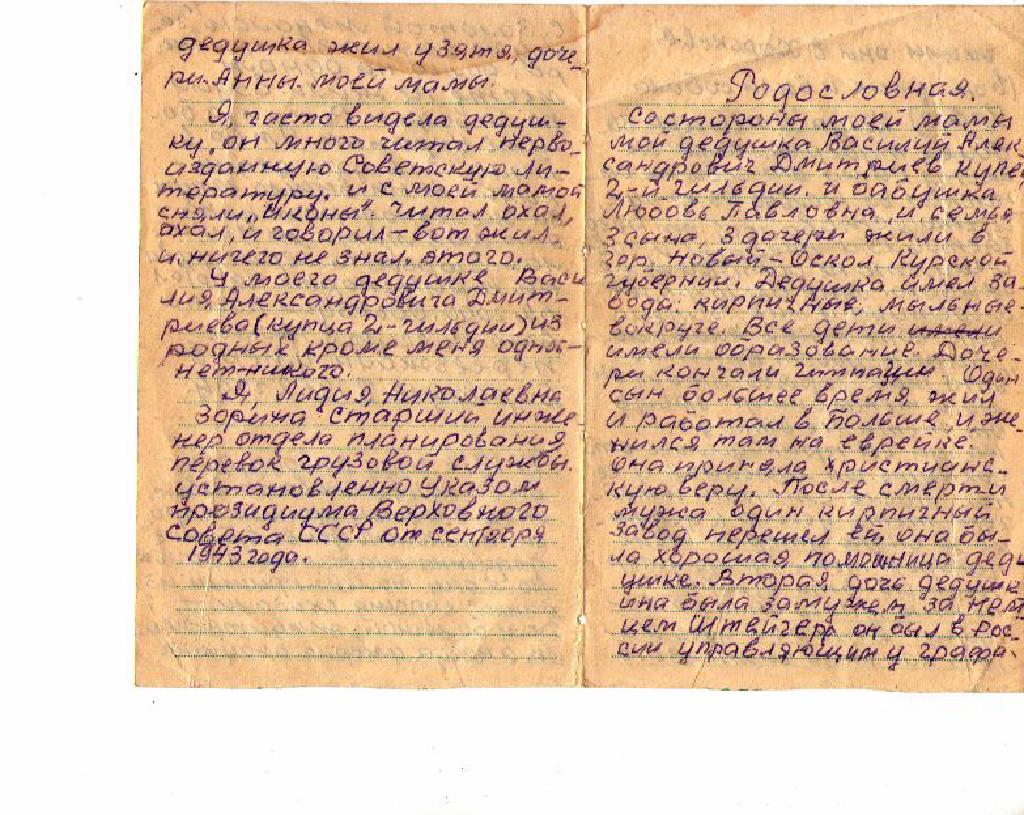 дедушка жил у зятя, доче-
ри. Анны. моей мамы.
Я, часто видела дедуш-
ку, он много читал перво-
изданную Советскую ли-
тературу. и с моей мамой
сняли „иконы". Читал охал,
охал, и говорил – вот жил.
и. ничего не знал. этого.
У моего дедушке Васи
лия, Александровича Дмит-
риева (купца 2й- гильдии) из
родных кроме меня одной-
нет никого.
Я, Лидия, Николаевна
Зорина старший инже
нер отдела планирования,
перевок грузовой службы.
установленно Указом
прозидиума Верховного
Совета СССР от сентября
1943 года.
Родословная.
Со стороны моей мамы
мой дедушка Василий Алек
сандрович Дмитриев купец
2-й гильдии. и бабушка
Любовь Павловна, и семья
3 сына, 3 дочери жили в
гор. Новый-Оскол Курской
губернии. Дедушка имел за
вода: кирпичные, мыльные
вокруге. Все дети имели
имели образование. Доче-
ри кончали гимнации. Один
сын большее время, жил
и работал в Польше, и же-
нился там на еврейке.
она приняла христианс-
кую веру. После смерти
мужа один кирпичный
завод перешел ей, она бы-
ла хорошая помошница дед-
ушке. Вторая, дочь дедушк
ина была замужем за нем
цем Штейгер, он был в Рос-
сии управляющим у графа.